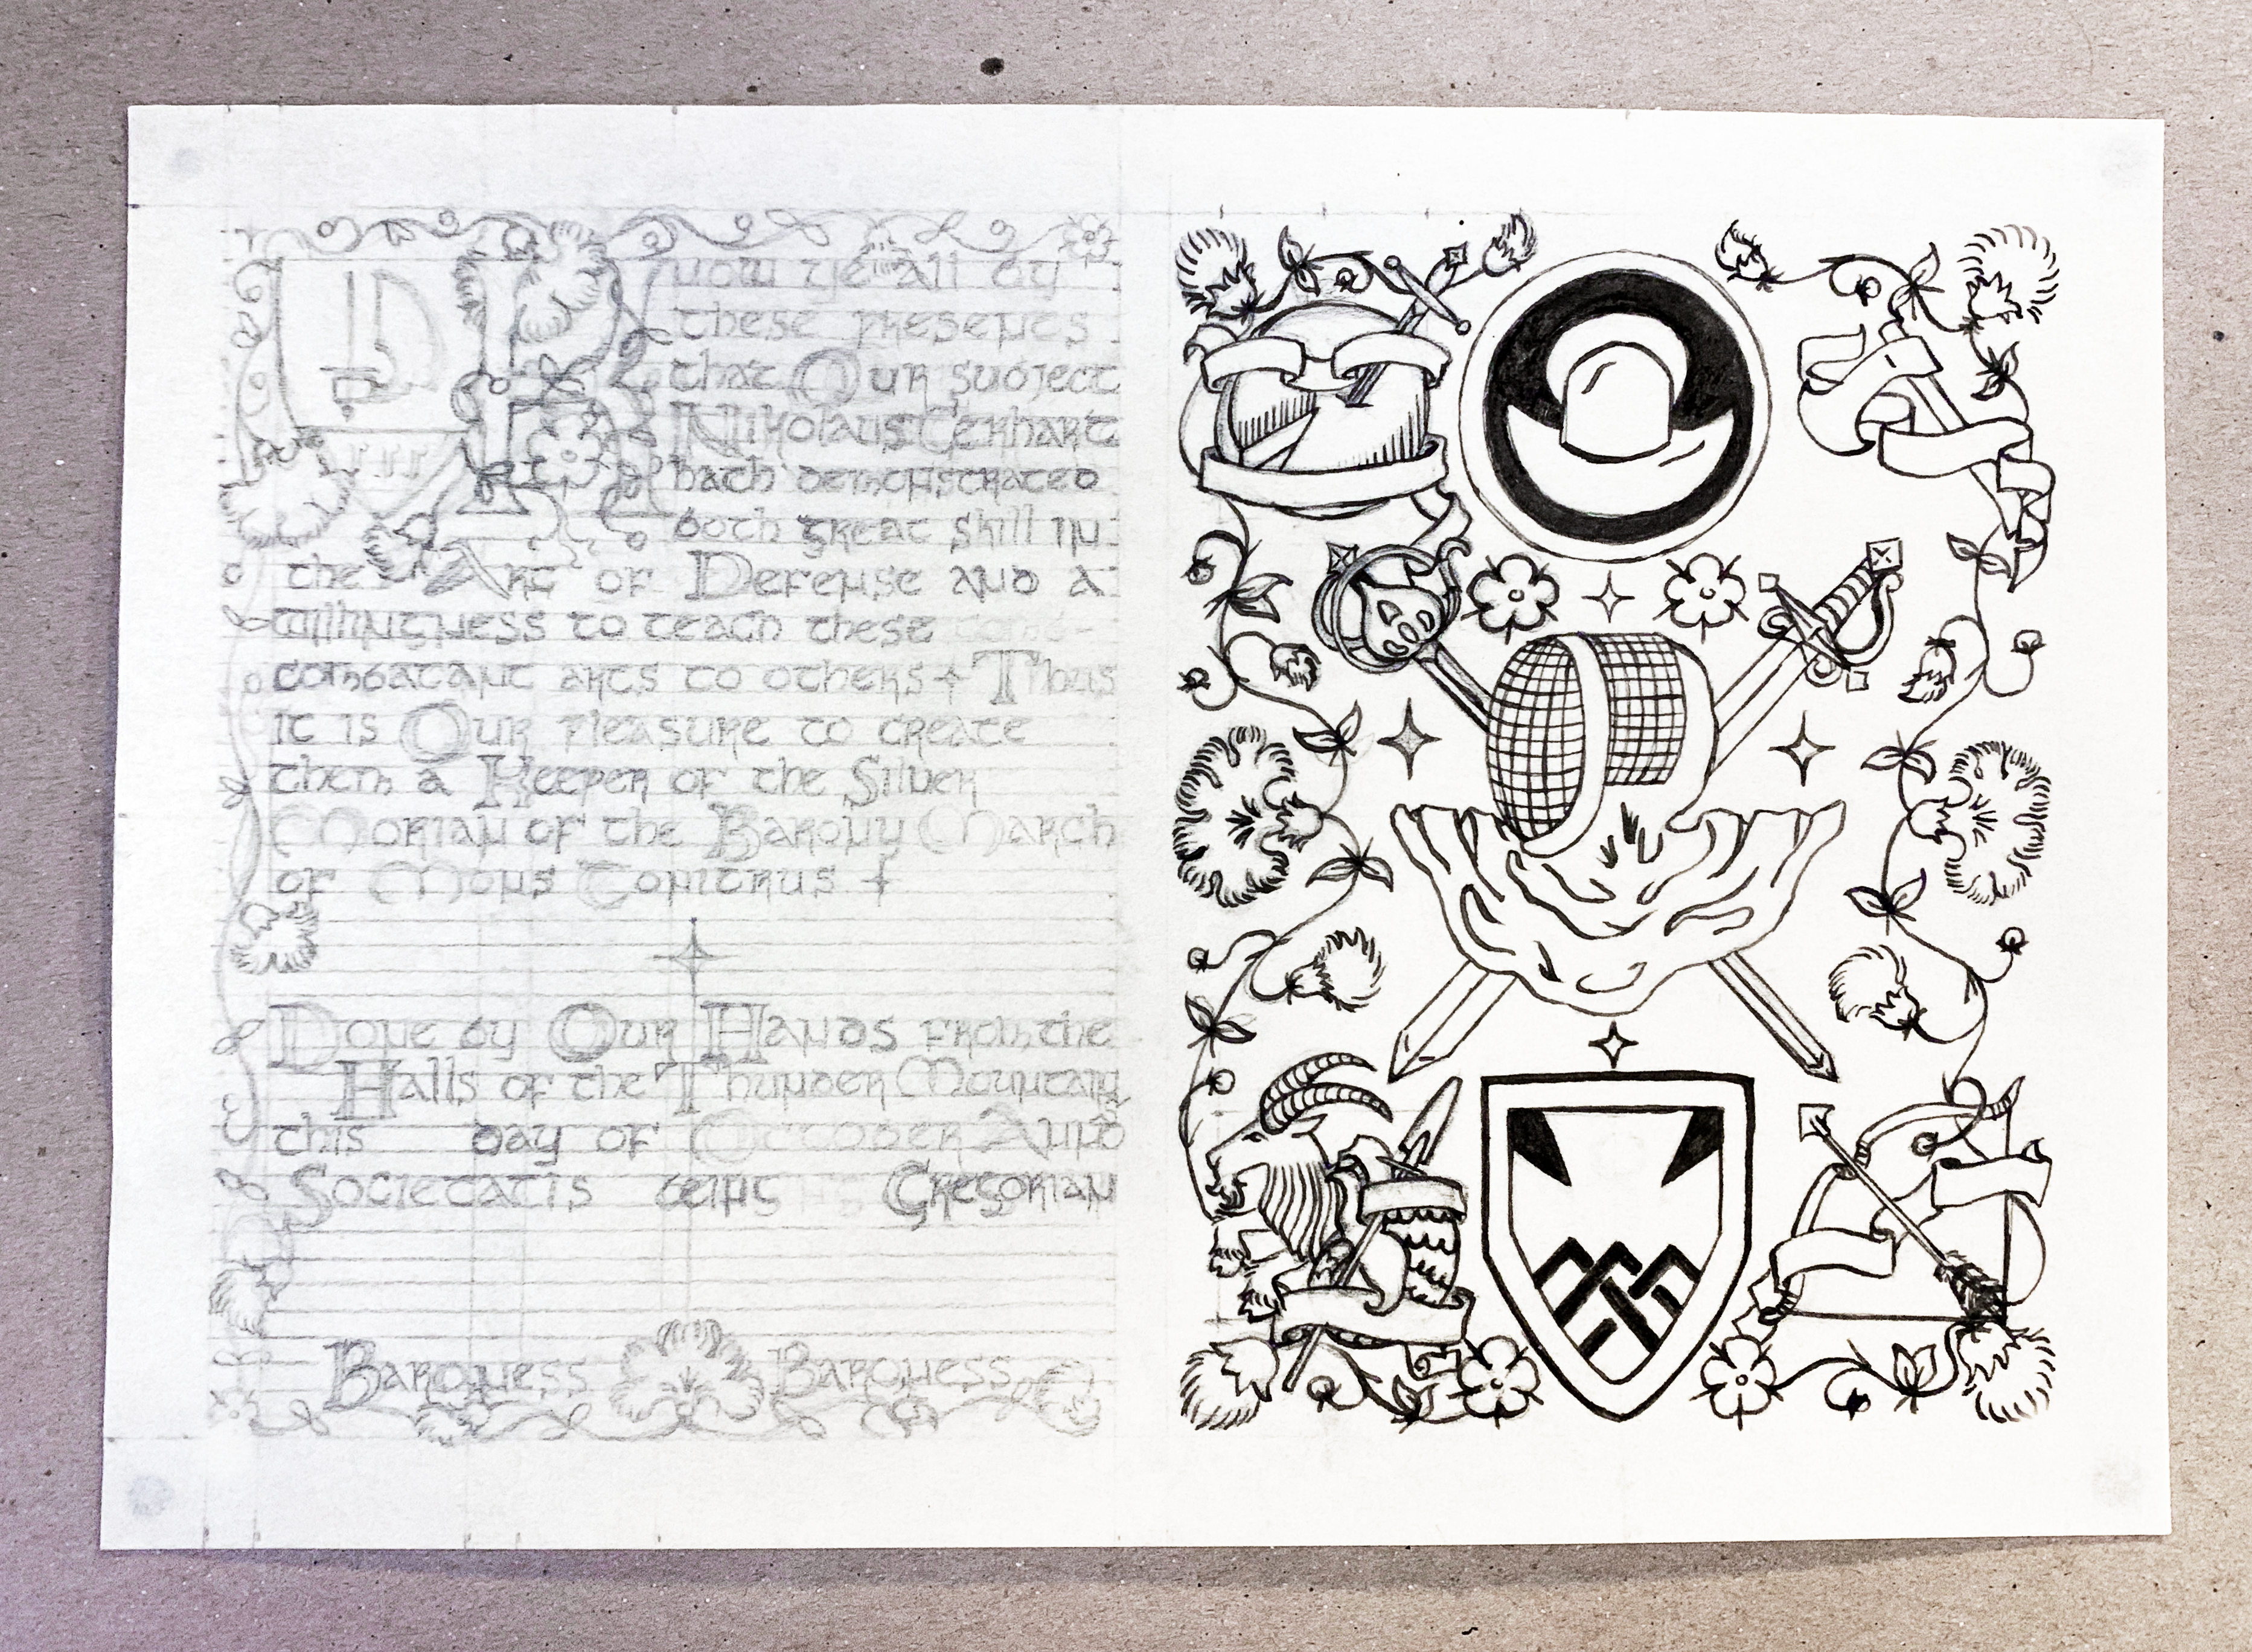 Know ye all by
these presents
that Our subject
Nikolaus Gerhart
hath demonstrated
both great skill in
the Art of Defense and a
willingness to teach these
combatant arts to others Thus
it is Our Pleasure to create
them a Keeper of the Silver
Morian of the Barony March
of Mons Tonitrus
Done by Our Hands from the
Halls of the Thunder Mountain
this day of October Anno
Societatis being Gregorian
Baroness Baroness